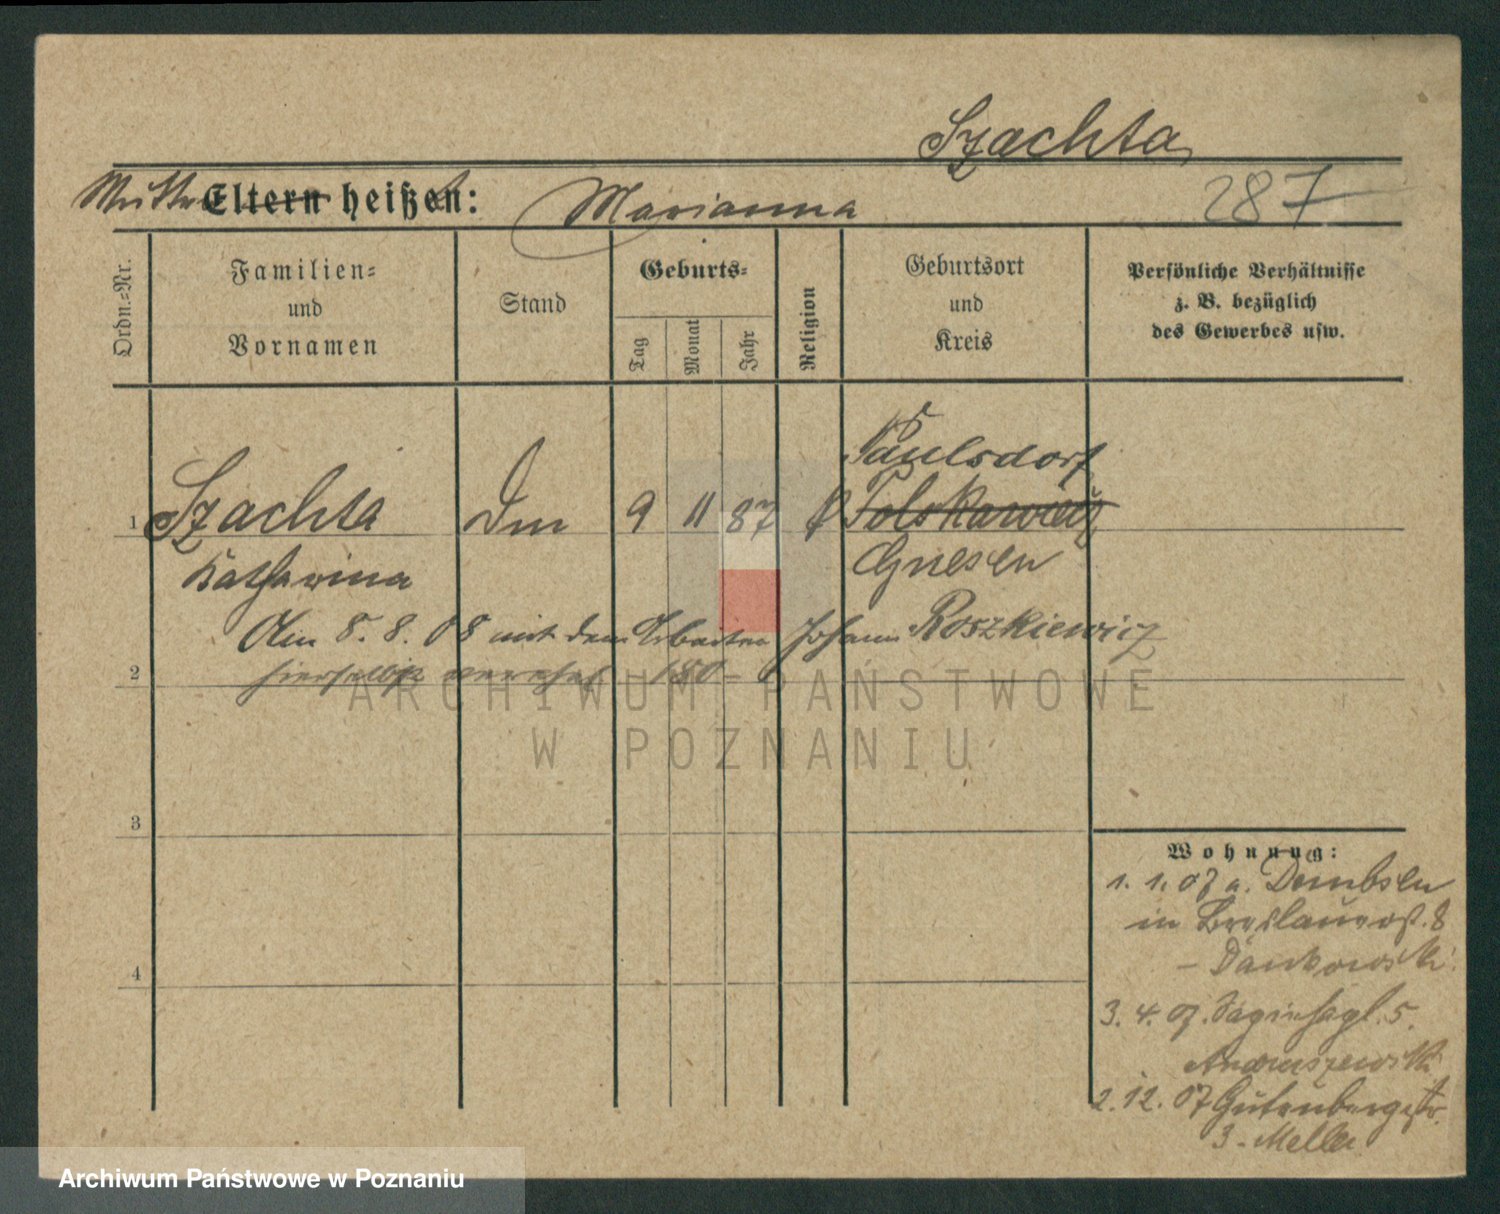 Szachta
Mutter Eltern heißen: Marianna
287
Ordn.-Nr.
Familien-
und
Vornamen
Stand
Geburts-
Tag
Monat
Jahr
Religion
Geburtsort
und
Kreis
Persönliche Verhältnisse
z. B. bezüglich
des Gewerbes usw.
Paulsdorf
1 Szachta 9 11 87 Polskawieś
Katharina Gnesen
Am 8. 8. 08 mit dem Arbeiter Johann Roszkiewicz
2 hierselbst verehel.
3
4
Wohnung:
1. 1. 07 a. Dembsen
in Breslauerst. 8
- Dankowski
3. 4. 07.
Andruszewski
2. 12. 07 Gutenbergstr.
3 - Meller
ARCHIWUM PAŃSTWOWE
W POZNANIU
Archiwum Państwowe w Poznaniu